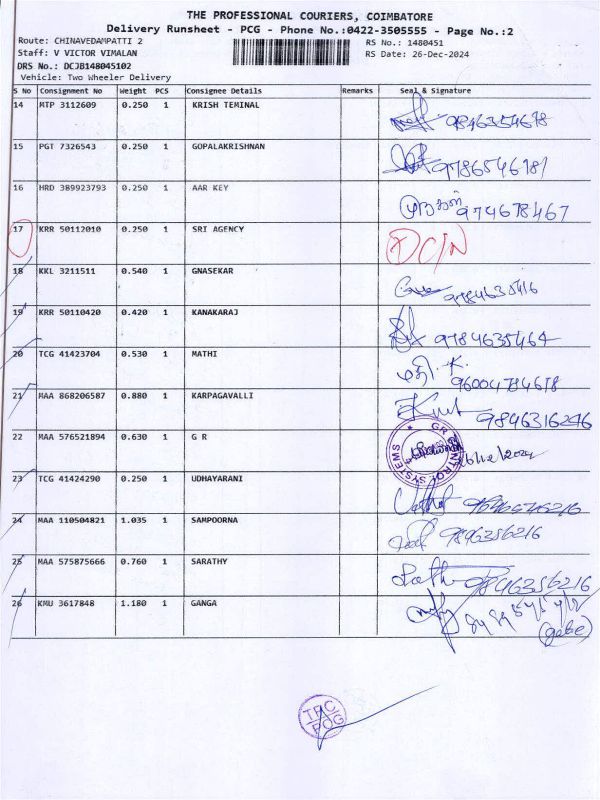 THE PROFESSIONAL COURIERS, COIMBATORE
Delivery Runsheet - PCG - Phone No.:0422-3505555 - Page No.:2
Route: CHINAVEDAMPATTI 2 RS No.: 1480451
Staff: V VICTOR VIMALAN RS Date: 26-Dec-2024
DRS No.: DCJB148045102
Vehicle: Two Wheeler Delivery
S No Consignment No Weight PCS Consignee Details Remarks Seal & Signature
14 MTP 3112609 0.250 1 KRISH TEMINAL
15 PGT 7326543 0.250 1 GOPALAKRISHNAN 9786546781
16 HRD 389923793 0.250 1 AAR KEY முருகன் 974678467
17 KRR 50112010 0.250 1 SRI AGENCY
18 KKL 3211511 0.540 1 GNASEKAR 9784635416
19 KRR 50110420 0.420 1 KANAKARAJ 9784635464
20 TCG 41423704 0.530 1 MATHI மதி. K. 96004784678
21 MAA 868206587 0.880 1 KARPAGAVALLI 9846316246
22 MAA 576521894 0.630 1 G R 26/12/2024
23 TCG 41424290 0.250 1 UDHAYARANI
24 MAA 110504821 1.035 1 SAMPOORNA 9896356216
25 MAA 575875666 0.760 1 SARATHY 9846356216
26 KMU 3617848 1.180 1 GANGA
(gate)
TPC
PCG